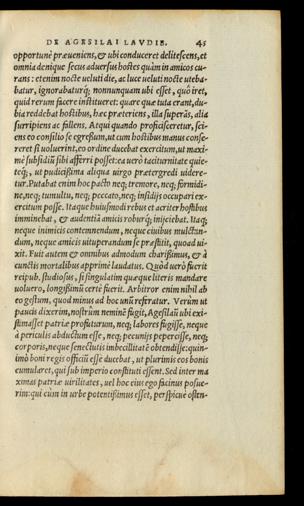 DE AGESILAI LAVDIB. 45
opportunè præueniens, & ubi conduceret delitescens, et
omnia denique secus aduersus hostes quàm in amicos cu-
rans: etenim nocte ueluti die, ac luce ueluti nocte uteba-
batur, ignorabaturq́; nonnunquam ubi esset, quò iret,
quid rerum facere institueret: quare quæ tuta erant, du-
bia reddebat hostibus, hæc præteriens, illa superās, alia
surripiens ac fallens. Atqui quando proficisceretur, sci-
ens eo consilio se egressum, ut cum hostibus manus conse-
reret si uoluerint, eo ordine ducebat exercitum, ut maxi-
mè subsidiū sibi afferri posset: ea uerò taciturnitate quie-
teq́;, ut pudicissima aliqua uirgo prætergredi uidere-
tur. Putabat enim hoc pacto neq; tremore, neq; formidi-
ne, neq; tumultu, neq; peccato, neq; insidijs occupari ex-
ercitum posse. Itaque huiusmodi rebus et acriter hostibus
imminebat, & audentiā amicis roburq́; inijciebat. Itaq;
neque inimicis contemnendum, neque ciuibus mulctan-
dum, neque amicis uituperandum se præstitit, quoad ui-
xit. Fuit autem & omnibus admodum charissimus, & à
cunctis mortalibus apprimè laudatus. Quòd uerò fuerit
reipub. studiosus, si singulatim quæque literis mandare
uoluero, longissimū certè fuerit. Arbitror enim nihil ab
eo gestum, quod minus ad hoc unū referatur. Verùm ut
paucis dixerim, nostrûm neminē fugit, Agesilaū ubi exi-
stimasset patriæ profuturum, neq; labores fugisse, neque
à periculis abductum esse, neq; pecunijs pepercisse, neq;
corporis, neque senectutis imbecillitatē obtendisse: quin-
imò boni regis officiū esse ducebat, ut plurimis eos bonis
cumularet, qui sub imperio constituti essent. Sed inter ma
ximas patriæ utilitates, uel hoc eius ego facinus posue-
rim: qui cùm in urbe potentissimus esset, perspicuè osten-